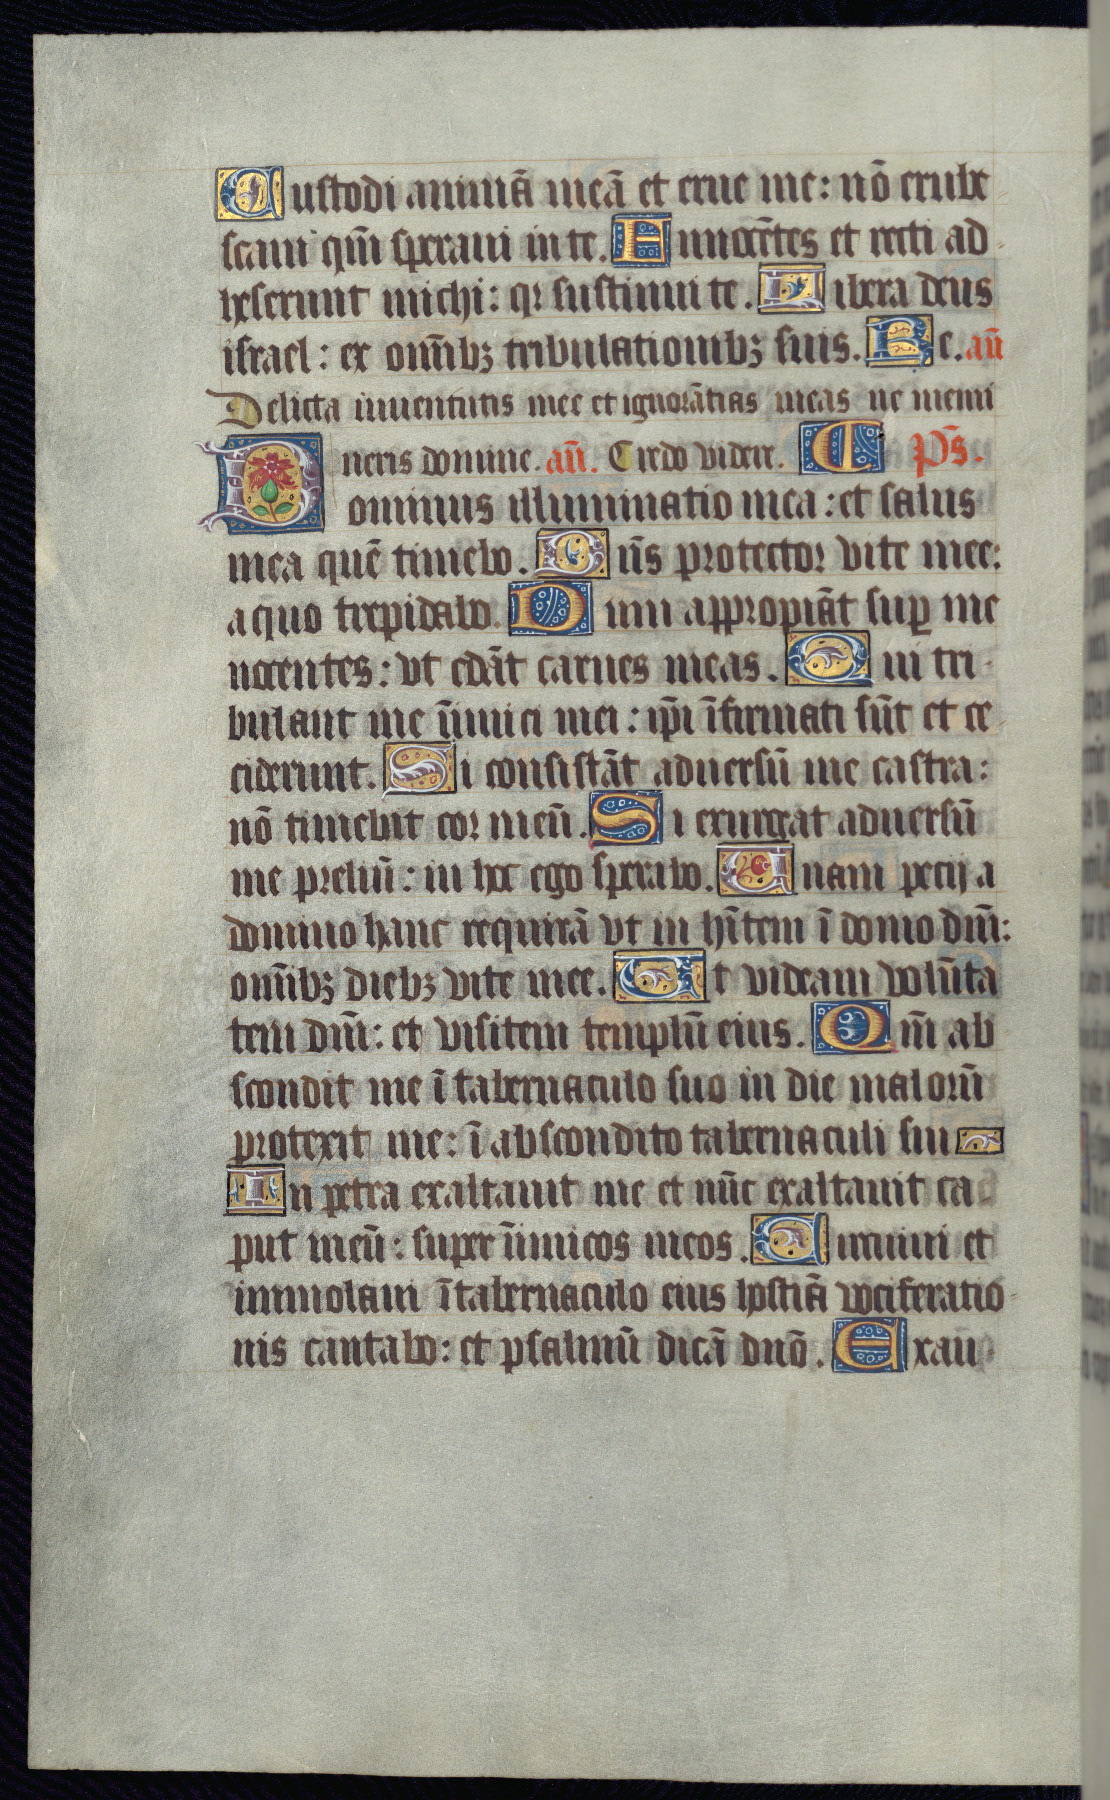 Custodi animā meā et erue me: nō erube
scam qm̄ speraui in te. Innocētes et recti ad
heserunt michi: qr sustinui te. Libera deus
israel: ex om̄ibȝ tribulationibȝ suis. Re. añ
Delicta iuuentutis mee et ignorātias meas ne memi
neris domine. añ. Credo videre. Ps̄.
Dominus illuminatio mea: et salus
mea quē timebo. Dn̄s protector vite mee:
a quo trepidabo. Dum appropiāt sup me
nocentes: vt edāt carnes meas. Qui tri
bulant me īimici mei: ip̄i īfirmati sūt et ce
ciderunt. Si consistāt aduersū me castra:
nō timebit cor meū. Si exurgat aduersū
me preliū: in hoc ego sperabo. Unam pecij a
domino hanc requirā vt in hītem ī domo dm̄:
om̄ibȝ diebȝ vite mee. Ut videam volūta
tem dm̄: et visitem templū eius. Qm̄ ab
scondit me ī tabernaculo suo in die malorū
protexit me: ī abscondito tabernaculi sui
In petra exaltauit me et nūc exaltauit ca
put meū: super īimicos meos. Circuiui et
immolaui ī tabernaculo eius hostiā vociferatio
nis cantabo: et psalmū dicā dn̄o. Exau